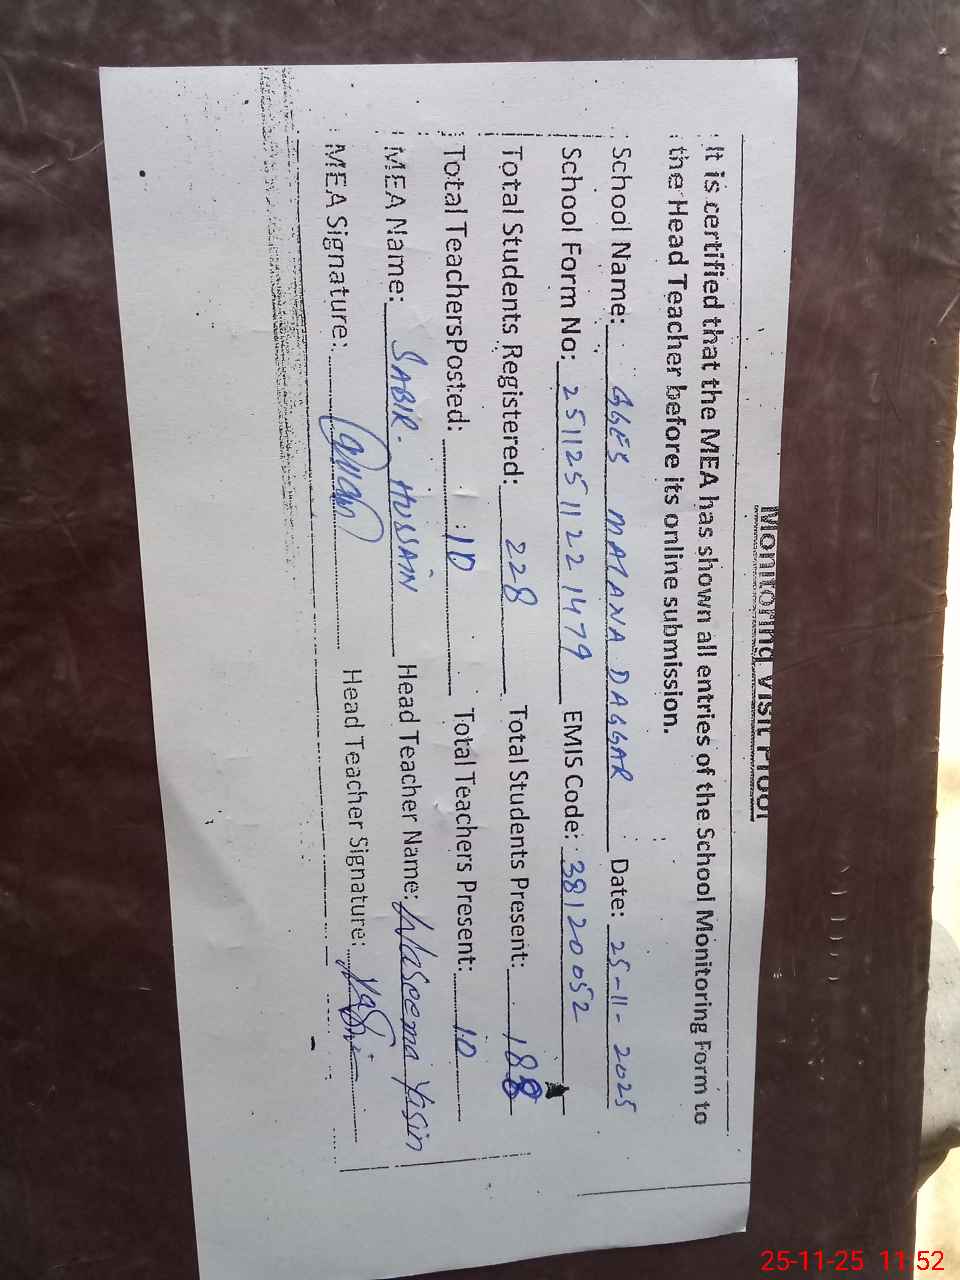 Monitoring Visit Proof
It is certified that the MEA has shown all entries of the School Monitoring Form to
the Head Teacher before its online submission.
School Name: GGES MAMANA DAGGAR Date: 25-11-2025
School Form No: 25112511221479 EMIS Code: 38120052
Total Students Registered: 228 Total Students Present: 188
Total TeachersPosted: 10 Total Teachers Present: 10
MEA Name: SABIR. HUSSAIN Head Teacher Name: Waseema Yasin
MEA Signature: Head Teacher Signature:
25-11-25 11:52